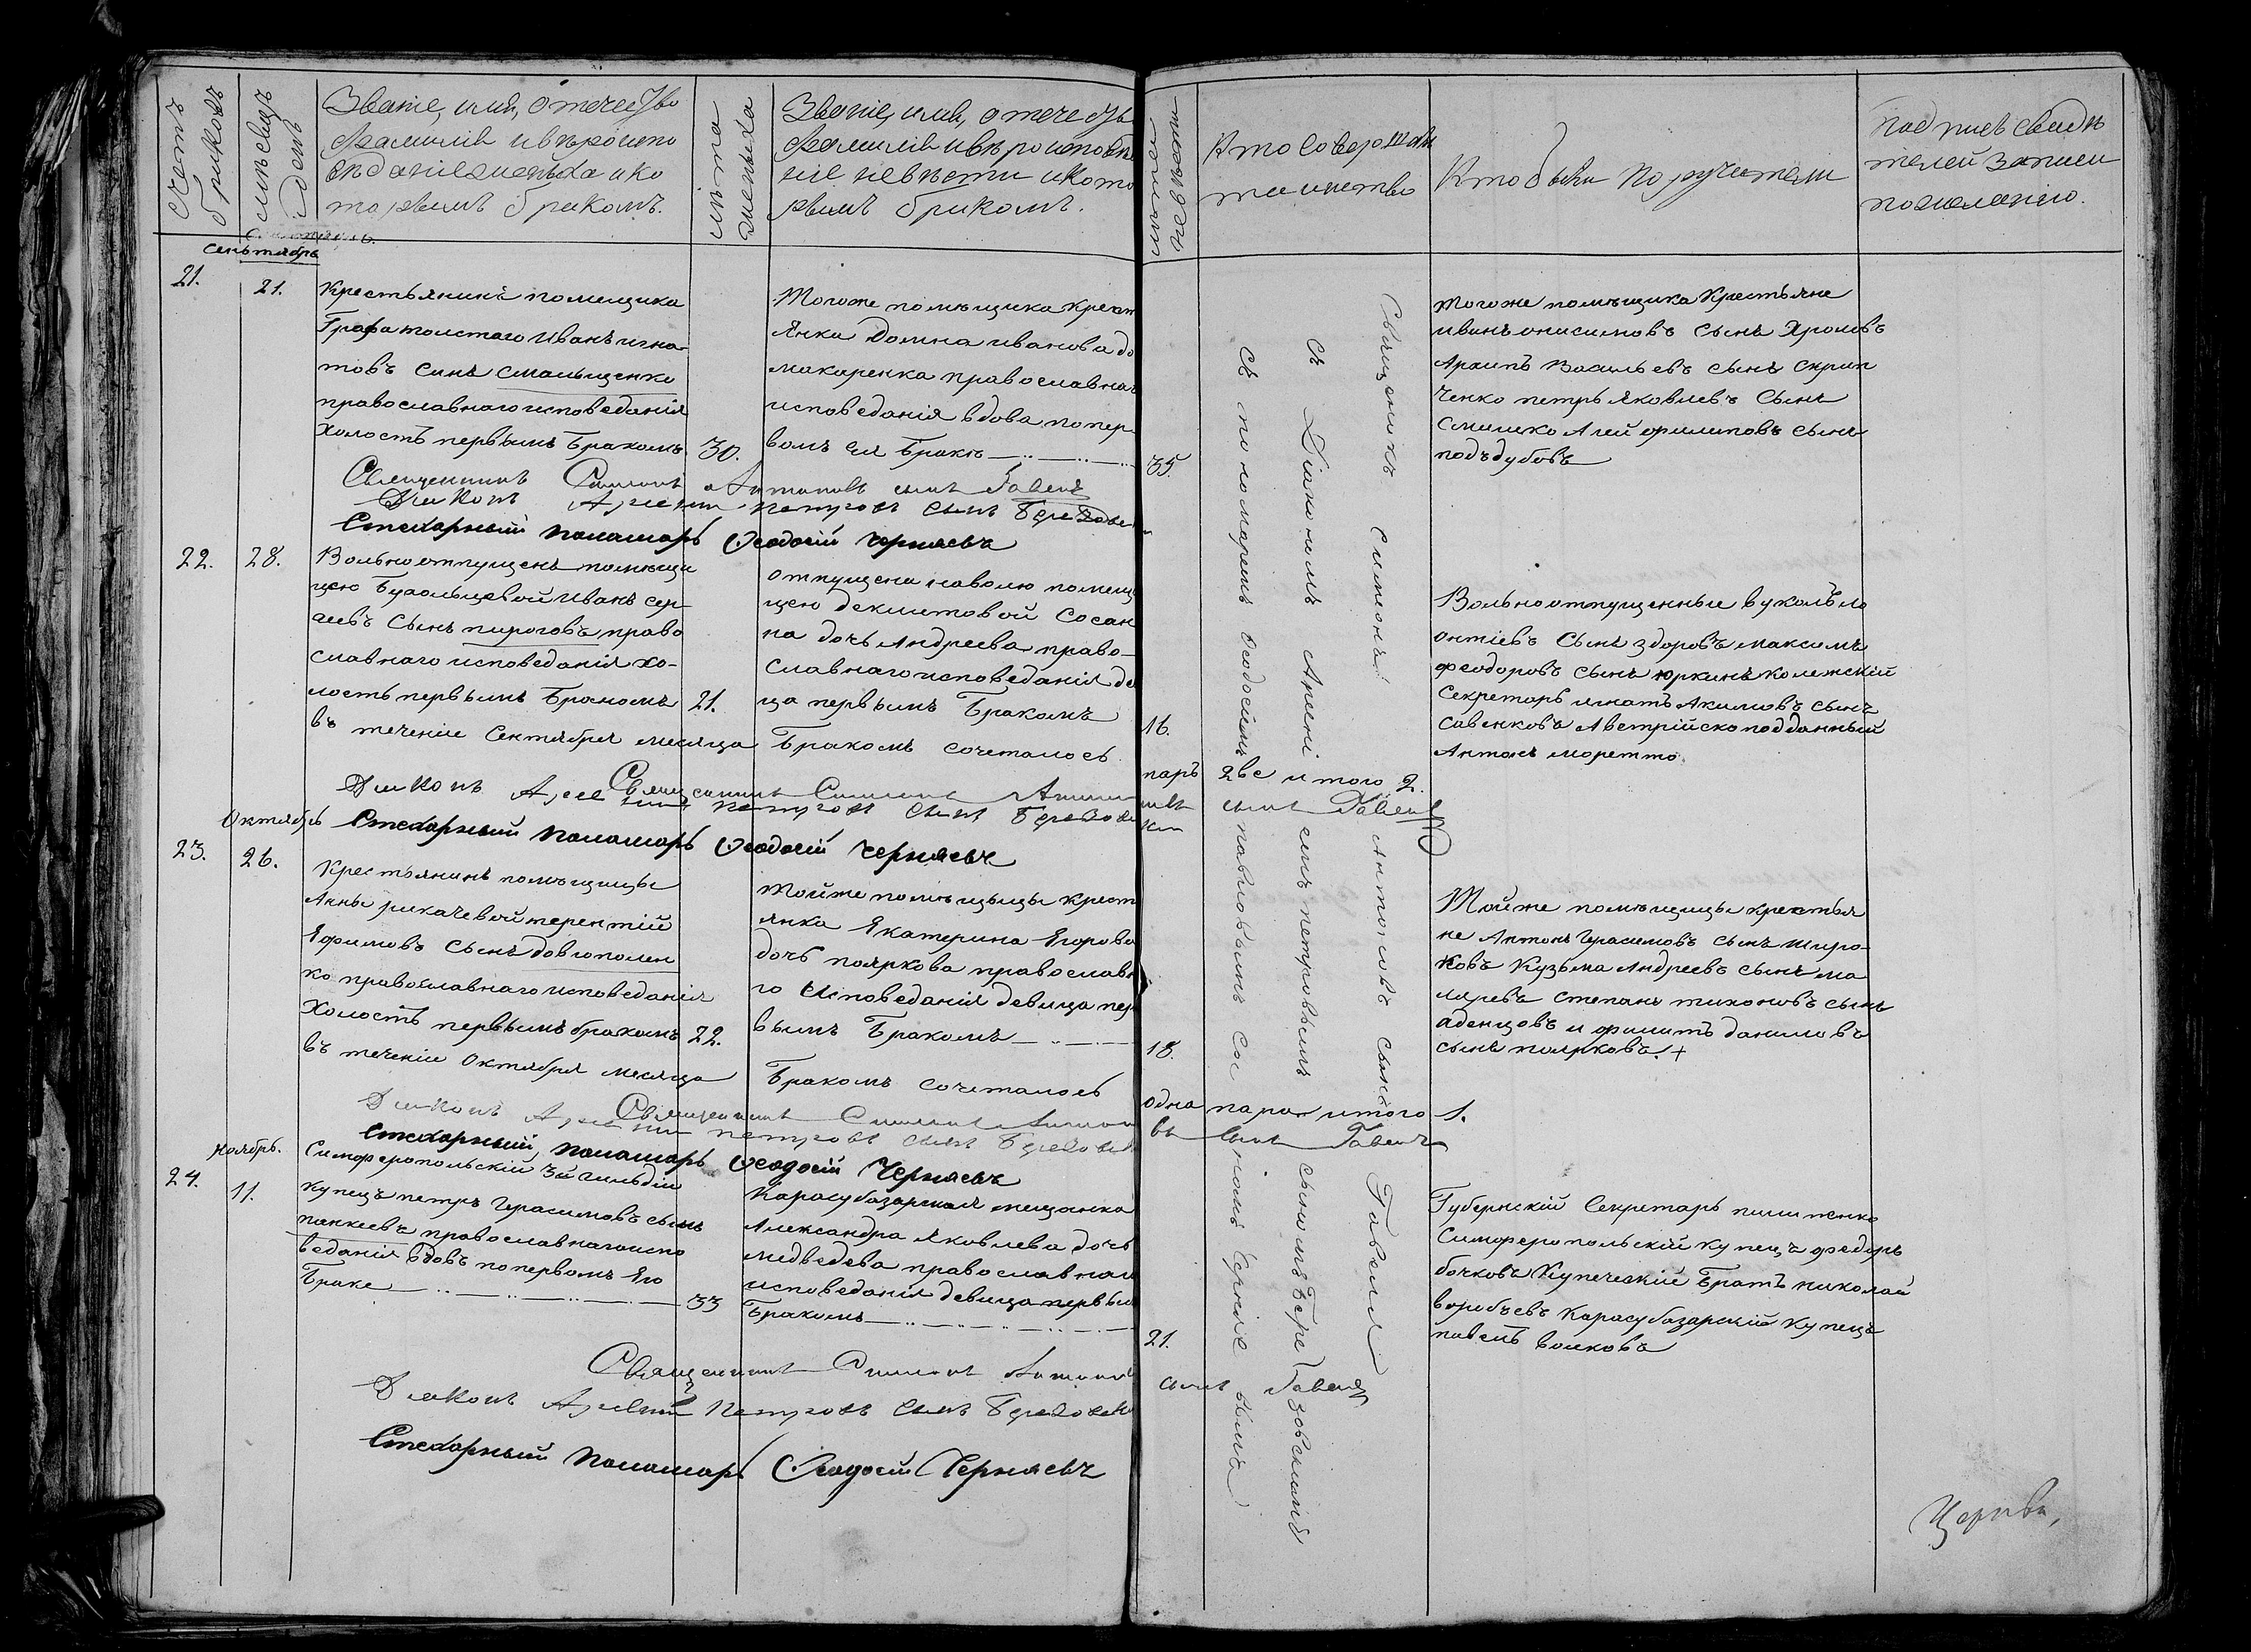 Счетъ
браковъ
месяцъ
и день
Званіе, имя, отечество
фамилія и вѣроиспо
вѣданіе жениха и ко
торымъ бракомъ.
лѣта
жениха
Званіе, имя, отечеств
фамилія и вѣроисповѣ
ніе невѣсти и кото
рымъ бракомъ.
лѣта
невѣсти
Кто совершалъ
таинство
Кто были поручители
подпись свидѣ
телей записи
по желанію.
сеньтябръ
21.
21.
Крестьянинъ помещика
Графа толстаго Иванъ игна-
товъ Синъ Смальщенко
православнаго исповеданія
Холостъ первымъ Бракомъ
30.
Тогоже помѣщика крест
янка Домна иванова до
макаренка православнаг
исповеданія вдова по пер-
вомъ ея Бракѣ
35.
тогоже помѣщика Крестьяне
иванъ онисимовъ Сынъ Хромовъ
Архипъ Васильевъ сынъ скрип
ченко петръ яковлевъ Сынъ
подъдубовъ
Священникъ Симеонъ Антоновъ сынъ Гавеля
Диаконъ Арсений петровъ сынъ
Стехарный понамарь Ѳеодосій Черняевъ
22.
28.
Вольноотпущенъ помѣщи
цею Иванъ сер-
геевъ Сынъ пироговъ право
славнаго исповеданія хо-
лостъ первымъ Бракомъ
21.
отпущена наволю помещ
цею Сосан
на дочь Андреева право-
славнаго исповеданія де
ца первымъ Бракомъ
16.
Вольноотпущенные вуколъ ле
онтіевъ Сынъ здоровъ максимъ
феодоровъ сынъ юркинъ колежскій
Секретарь игнатъ Акимовъ сынъ
савенковъ Австрійско подданный
Антонъ моретто
въ теченіе Сентября месяца Бракомъ сочеталось паръ две итого 2.
Священникъ Симеонъ Антоновъ сынъ Гавеля
Диаконъ Арсений петровъ сынъ
Стехарный понамарь Ѳеодосій Черняевъ
Октябрь
23.
26.
Крестьянинъ помѣщицы
Анны рикачевой терентій
Ефимовъ Сынъ довгополен
ко православнаго исповеданія
Холостъ первымъ бракомъ
22.
Тойже помѣщицы крест
янка Екатерина Егорова
дочь пояркова православн
го Исповеданія девица пер
вымъ Бракомъ
18.
Тойже помѣщицы крестья
не Антонъ Герасимовъ сынъ широ-
ковъ Кузьма Андреевъ сынъ ма
ляревъ степанъ тихоновъ сынъ
аденцовъ и филипъ даниловъ
сынъ поярковъ. +
въ теченіи Октября месяца Бракомъ сочеталось одна пара итого 1.
Священникъ Симеонъ Антоновъ сынъ Гавеля
Диаконъ Арсений петровъ сынъ
Стехарный понамарь Ѳеодосій Черняевъ
ноябрь.
24.
11.
Симферопольскій 3й гильдіи
купецъ петръ Герасимовъ сынъ
панкеевъ православнаго испо
веданія вдовъ по первомъ Его
Браке
33
Карасубазарская мещанка
Александра Яковлева дочь
медведева православнаг
исповеданія девица первым
Бракомъ
21.
Губернскій Секретарь
Симферопольскій купецъ федоръ
бочковъ Купеческій Братъ николай
воробъевъ Карасубазарскій купецъ
павелъ волковъ
Священникъ Симеонъ Антоновъ сынъ Гавеля
Диаконъ Арсений петровъ сынъ
Стехарный понамарь Ѳеодосій Черняевъ
Священникъ Симеонъ Антоновъ сынъ Гавеля
съ Діакономъ Арсені емъ петровымъ сыномъ Бере зовскимъ
съ пономаремъ Ѳеодосіемъ павловымъ сы номъ Черняе вымъ
Церкви,